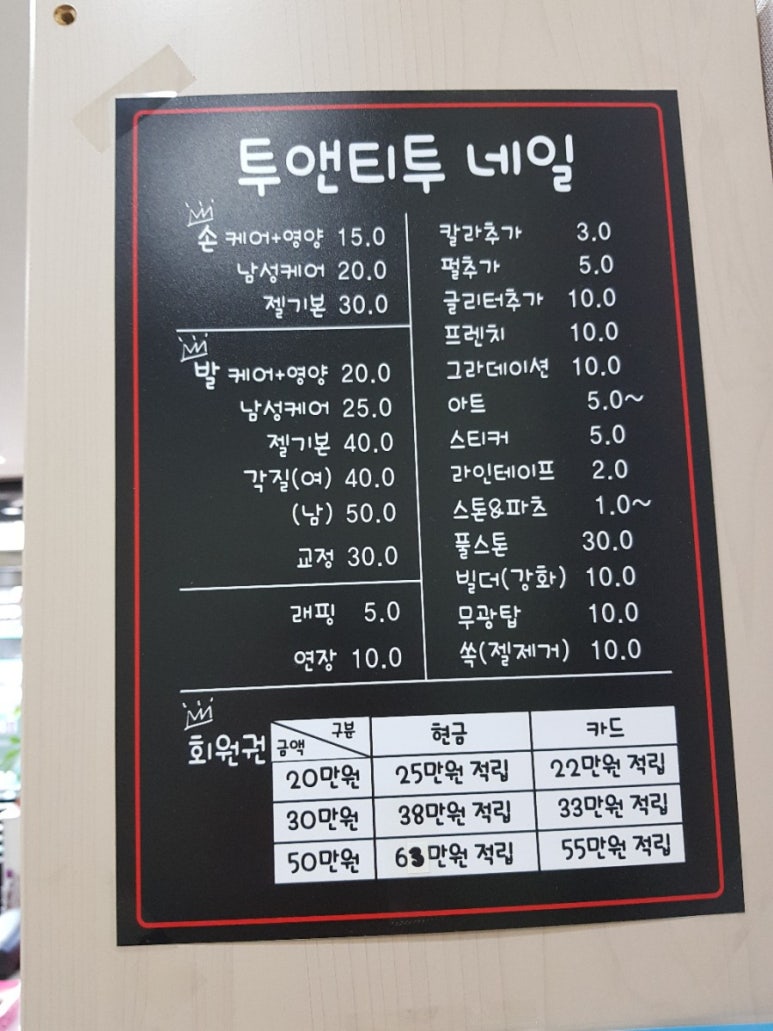 투앤티투 네일
손 케어+영양 15.0
남성케어 20.0
젤기본 30.0
발 케어+영양 20.0
남성케어 25.0
젤기본 40.0
각질(여) 40.0
(남) 50.0
교정 30.0
래핑 5.0
연장 10.0
칼라추가 3.0
펄추가 5.0
글리터추가 10.0
프렌치 10.0
그라데이션 10.0
아트 5.0~
스티커 5.0
라인테이프 2.0
스톤&파츠 1.0~
풀스톤 30.0
빌더(강화) 10.0
무광탑 10.0
쏙(젤제거) 10.0
회원권
구분 금액 현금 카드
20만원 25만원 적립 22만원 적립
30만원 38만원 적립 33만원 적립
50만원 63만원 적립 55만원 적립